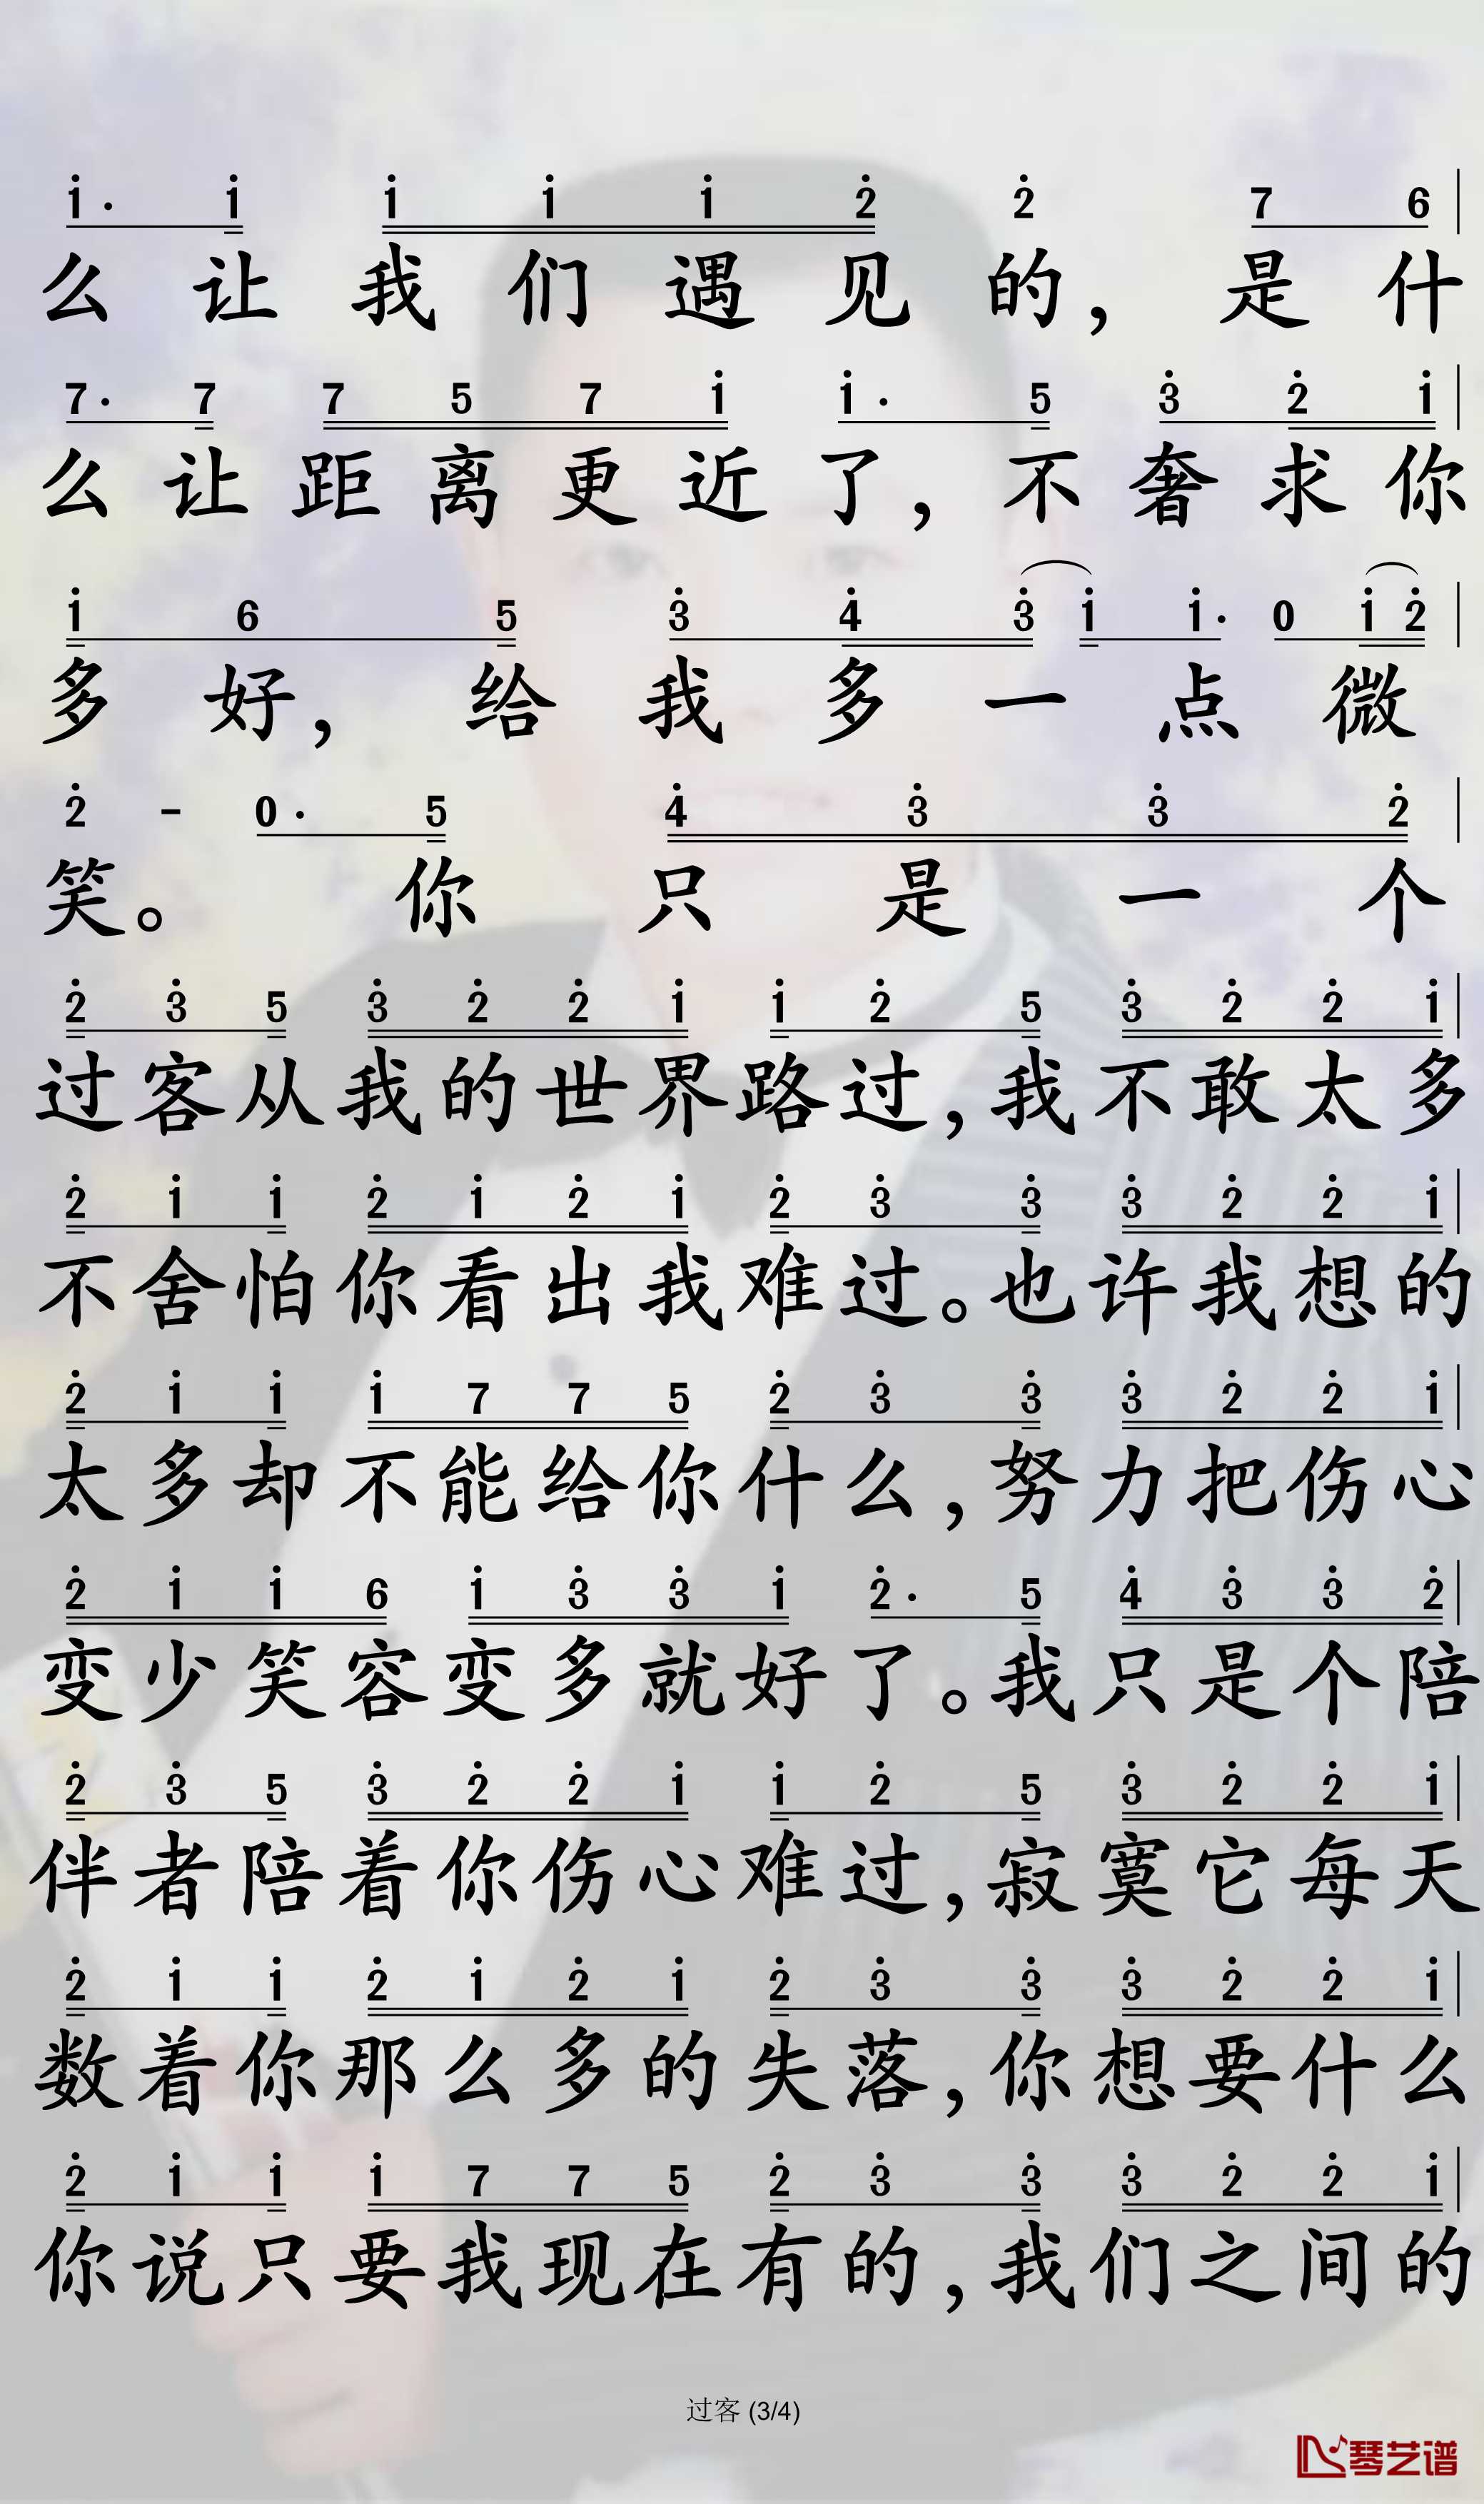 i· i i i i 2̇ 2̇ 7 6
么让我们遇见的，是什
7· 7 7 5 7 i i· 5 3̇ 2̇ i
么让距离更近了，不奢求你
i 6 5 3̇ 4̇ 3̇ i i· 0 i 2̇
多好，给我多一点微
2̇ - 0· 5 4̇ 3̇ 3̇ 2̇
笑。你只是一个
2̇ 3̇ 5 3̇ 2̇ 2̇ i i 2̇ 5 3̇ 2̇ 2̇ i
过客从我的世界路过，我不敢太多
2̇ i i 2̇ i 2̇ i 2̇ 3̇ 3̇ 3̇ 2̇ 2̇ i
不舍怕你看出我难过。也许我想的
2̇ i i i 7 7 5 2̇ 3̇ 3̇ 3̇ 2̇ 2̇ i
太多却不能给你什么，努力把伤心
2̇ i i 6 i 3̇ 3̇ i 2̇· 5 4̇ 3̇ 3̇ 2̇
变少笑容变多就好了。我只是个陪
2̇ 3̇ 5 3̇ 2̇ 2̇ i i 2̇ 5 3̇ 2̇ 2̇ i
伴者陪着你伤心难过，寂寞它每天
2̇ i i 2̇ i 2̇ i 2̇ 3̇ 3̇ 3̇ 2̇ 2̇ i
数着你那么多的失落，你想要什么
2̇ i i i 7 7 5 2̇ 3̇ 3̇ 3̇ 2̇ 2̇ i
你说只要我现在有的，我们之间的
过客 (3/4)
琴艺谱